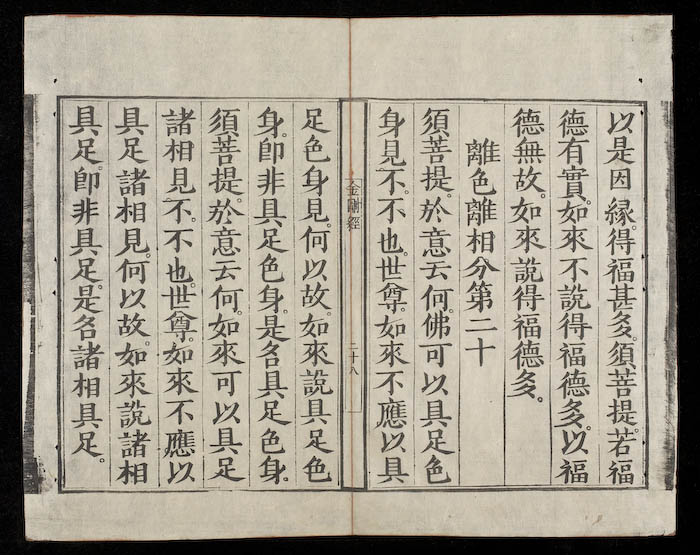 以是因緣。得福甚多。須菩提。若福
德有實。如來不說得福德多。以福
德無故。如來說得福德多。
離色離相分第二十
須菩提。於意云何。佛可以具足色
身見不。不也。世尊。如來不應以具
金剛經
二十八
足色身見。何以故。如來說具足色
身。卽非具足色身。是名具足色身。
須菩提。於意云何。如來可以具足
諸相見不。不也。世尊。如來不應以
具足諸相見。何以故。如來說諸相
具足。卽非具足。是名諸相具足。